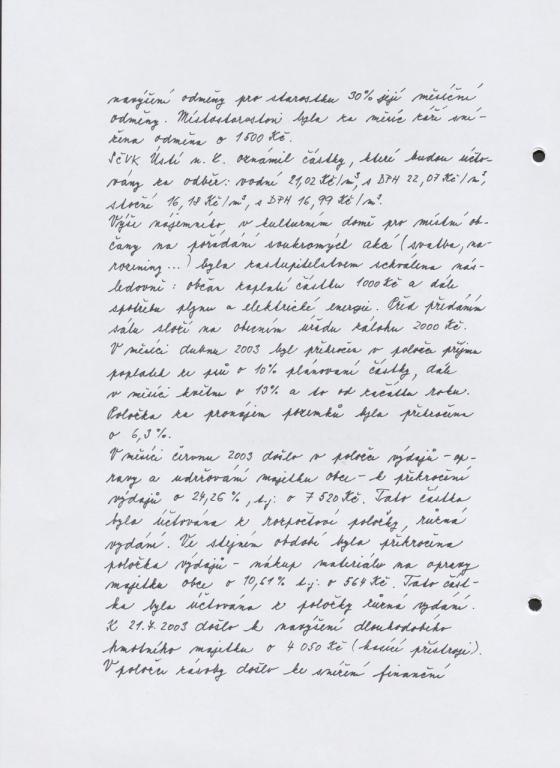 navýšení odměny pro starostku 30% její měsíční
odměny. Místostarostovi byla za měsíc září sní-
žena odměna o 1500 Kč.
SčVK Ústí n. L. oznámil částky, které budou účto-
vány za odběr: vodné 21,02 Kč/m³, s DPH 22,07 Kč/m³,
stočné 16,18 Kč/m³, s DPH 16,99 Kč/m³.
Výše nájemného v kulturním domě pro místní ob-
čany na pořádání soukromých akcí (svatba, na-
rozeniny...) byla zastupitelstvem schválena nás-
ledovně: občan zaplatí částku 1000 Kč a dále
spotřebu plynu a elektrické energie. Před předáním
sálu složí na obecním úřadu zálohu 2000 Kč.
V měsíci dubnu 2003 byl překročen v položce příjmu
poplatek ze psů o 10% plánované částky, dále
v měsíci květnu o 19% a to od začátku roku.
Položka za pronájem pozemků byla překročena
o 6,3%.
V měsíci červnu 2003 došlo v položce výdajů - op-
ravy a udržování majetku obce - k překročení
výdajů o 24,26%, t.j. o 7 520 Kč. Tato částka
byla účtována z rozpočtové položky, různá
vydání. Ve stejném období byla překročena
položka výdajů - nákup materiálu na opravy
majetku obce o 10,61% t.j. o 564 Kč. Tato část-
ka byla účtována z položky různá vydání.
K 21.7.2003 došlo k navýšení dlouhodobého
hmotného majetku o 4 050 Kč (hasící přístroje).
V položce zásoby došlo ke snížení finanční